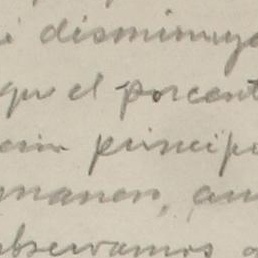 i disminuye
que el porcent
principi
manon, aun
observamos a